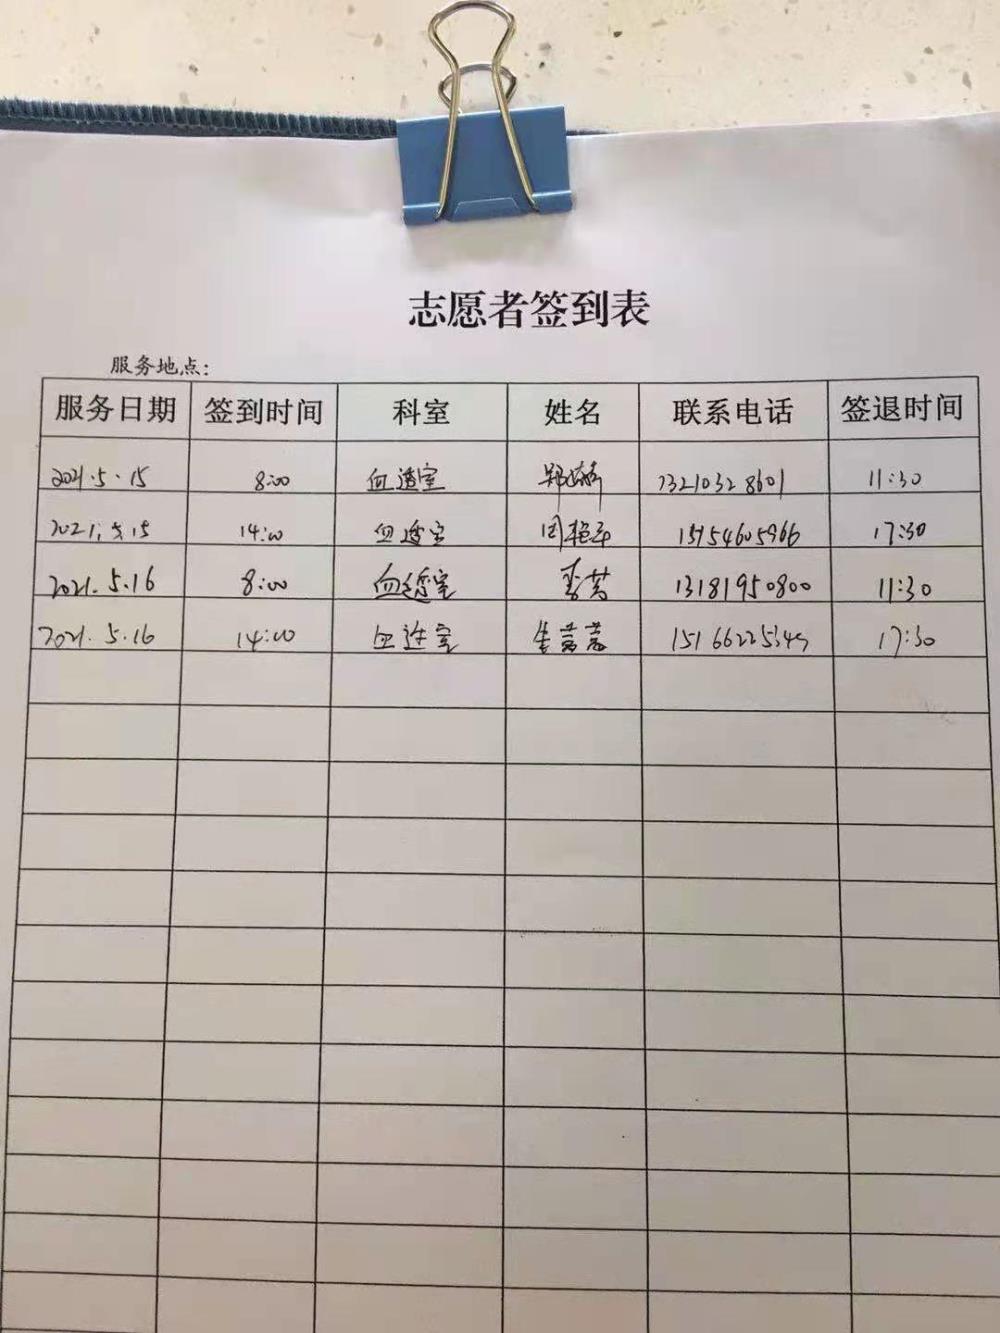 志愿者签到表
服务地点：
服务日期 签到时间 科室 姓名 联系电话 签退时间
2021.5.15 8:00 血透室 13210328601 11:30
2021.5.15 14:00 血透室 周艳平 15754605966 17:30
2021.5.16 8:00 血透室 李芳 13181950800 11:30
2021.5.16 14:00 血透室 15166225349 17:30